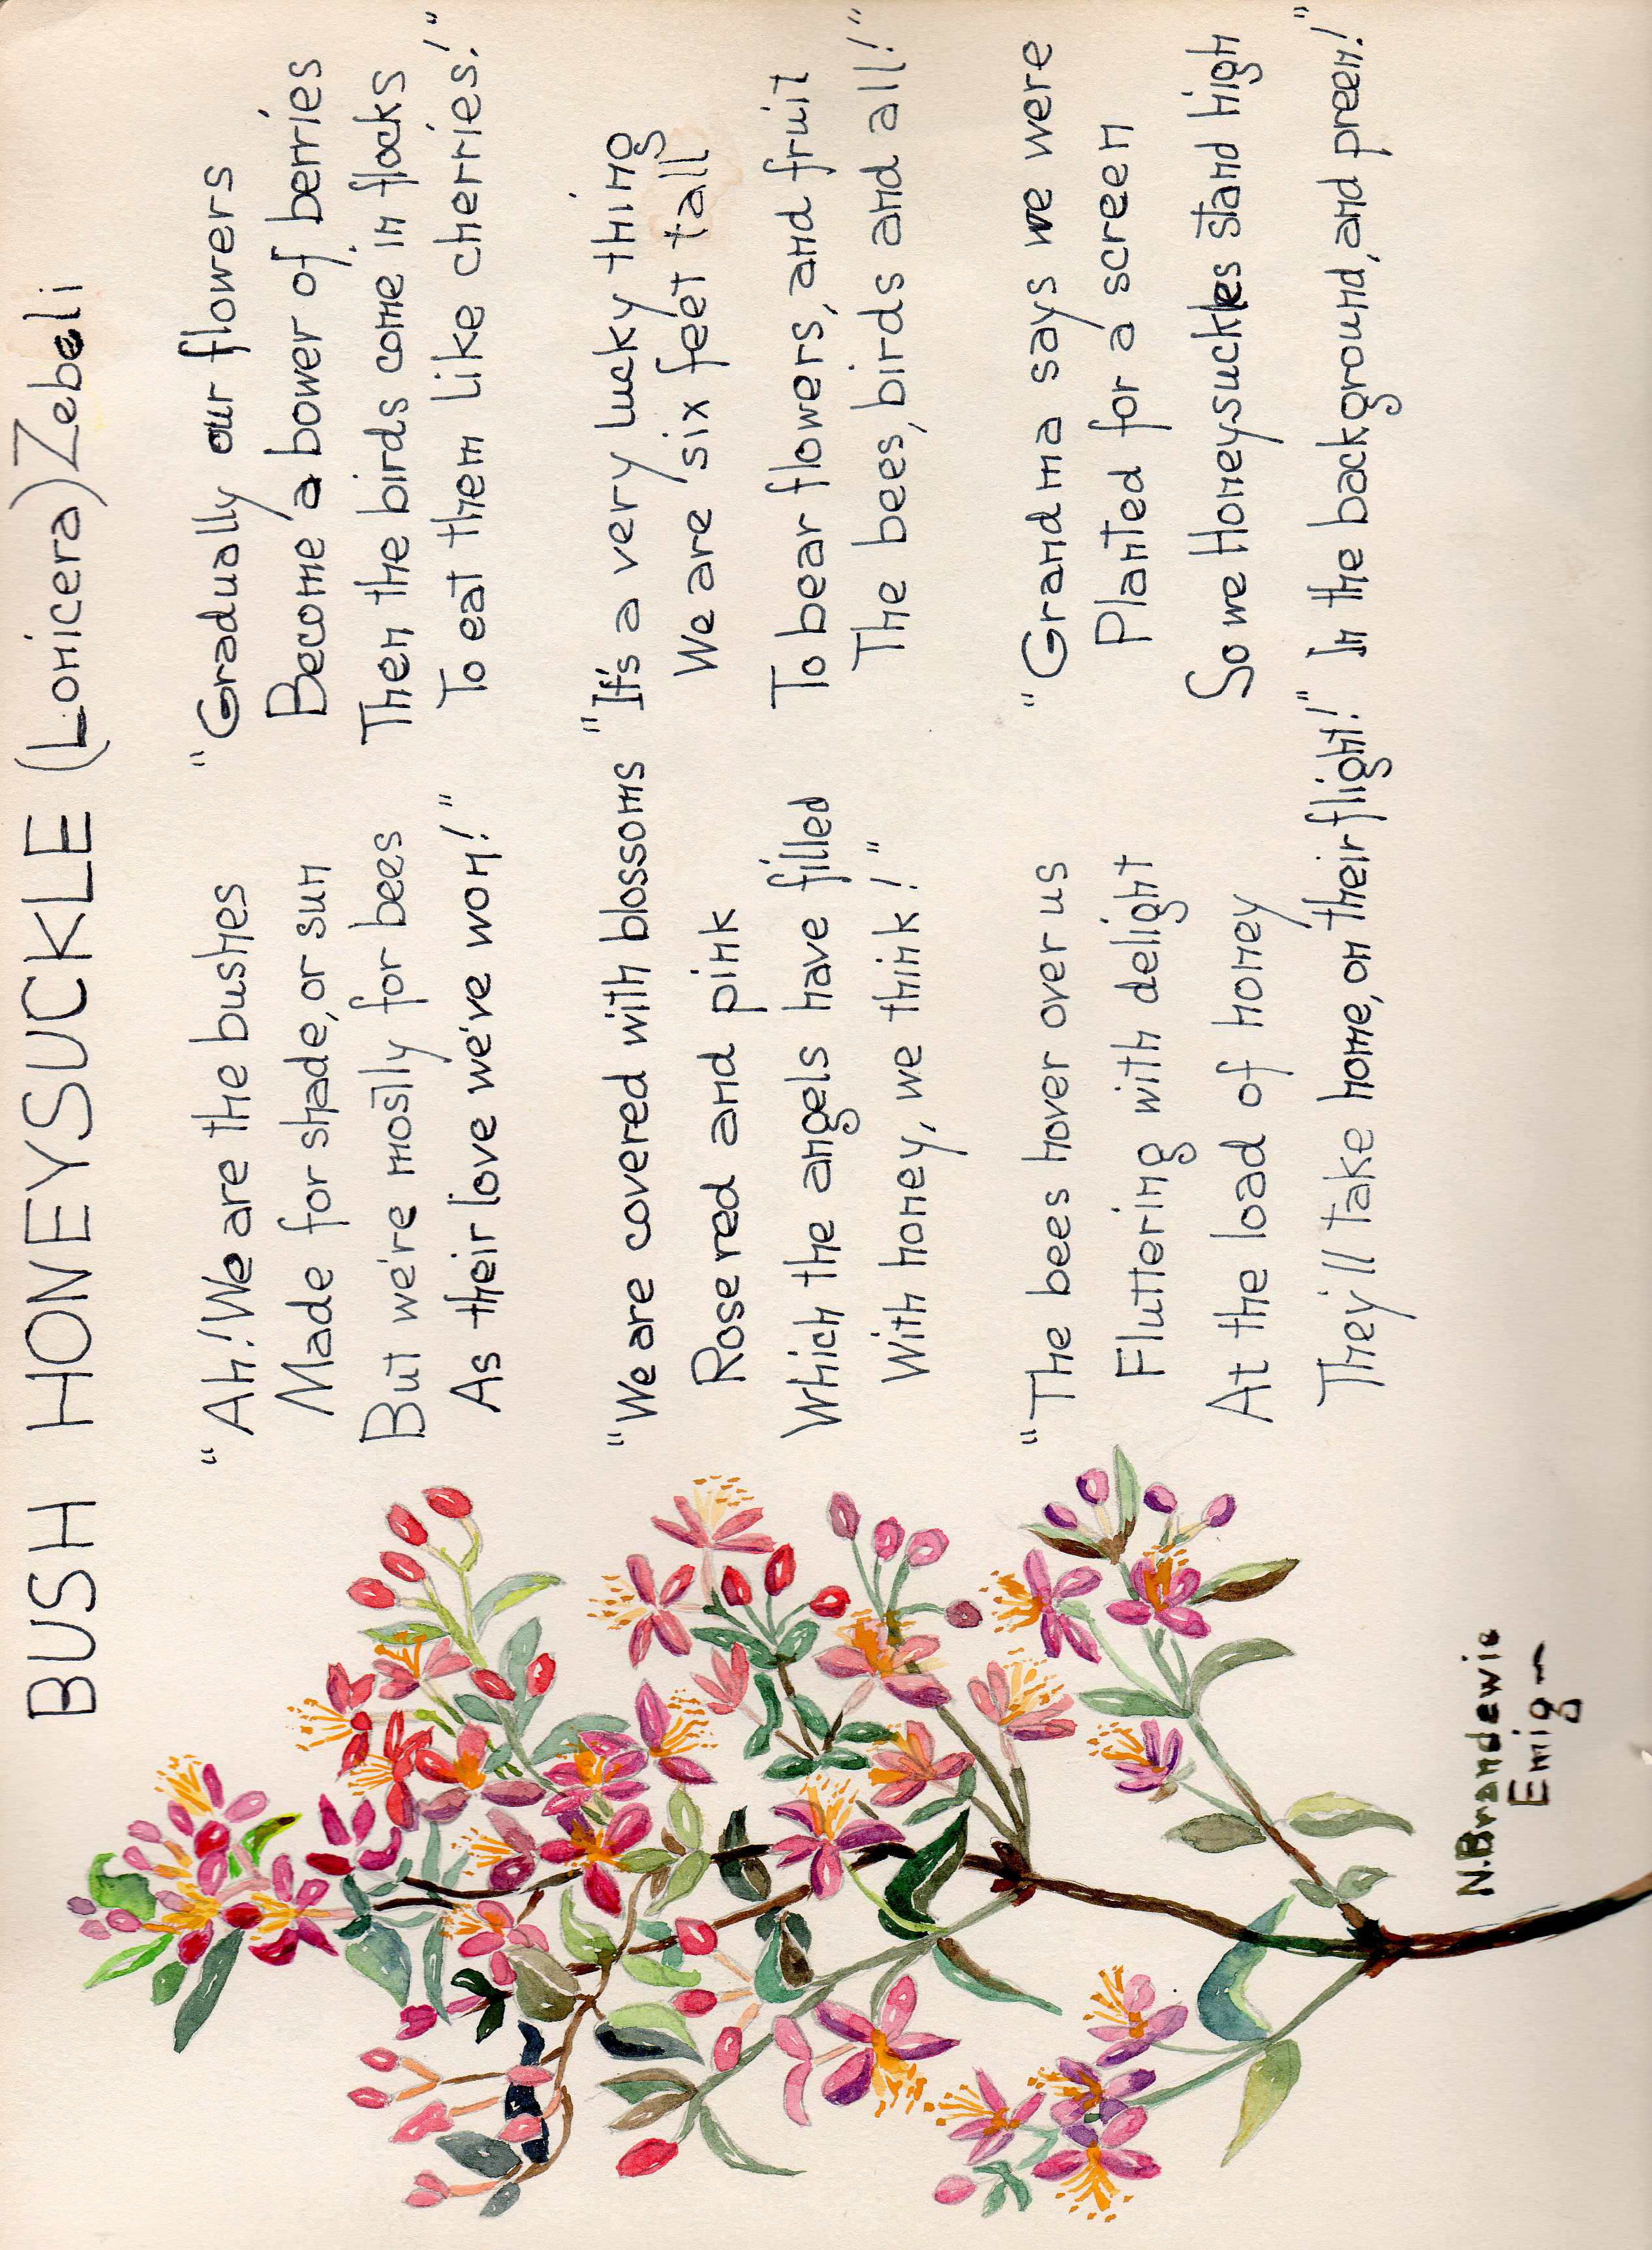 BUSH HONEYSUCKLE (Lonicera) Zebeli
"Ah! We are the bushes
Made for shade, or sun
But we're mostly for bees
As their love we've won!"
"We are covered with blossoms
Rose red and pink
Which the angels have filled
With honey, we think!"
"The bees hover over us
Fluttering with delight
At the load of honey
They'll take home, on their flight!"
"Gradually our flowers
Become a bower of berries
Then the birds come in flocks
To eat them like cherries!"
"It's a very lucky thing
We are six feet tall
To bear flowers, and fruit
The bees, birds and all!"
"Grandma says we were
Planted for a screen
So we Honeysuckles stand high
In the background, and preen!"
N. Brandewie
Emig